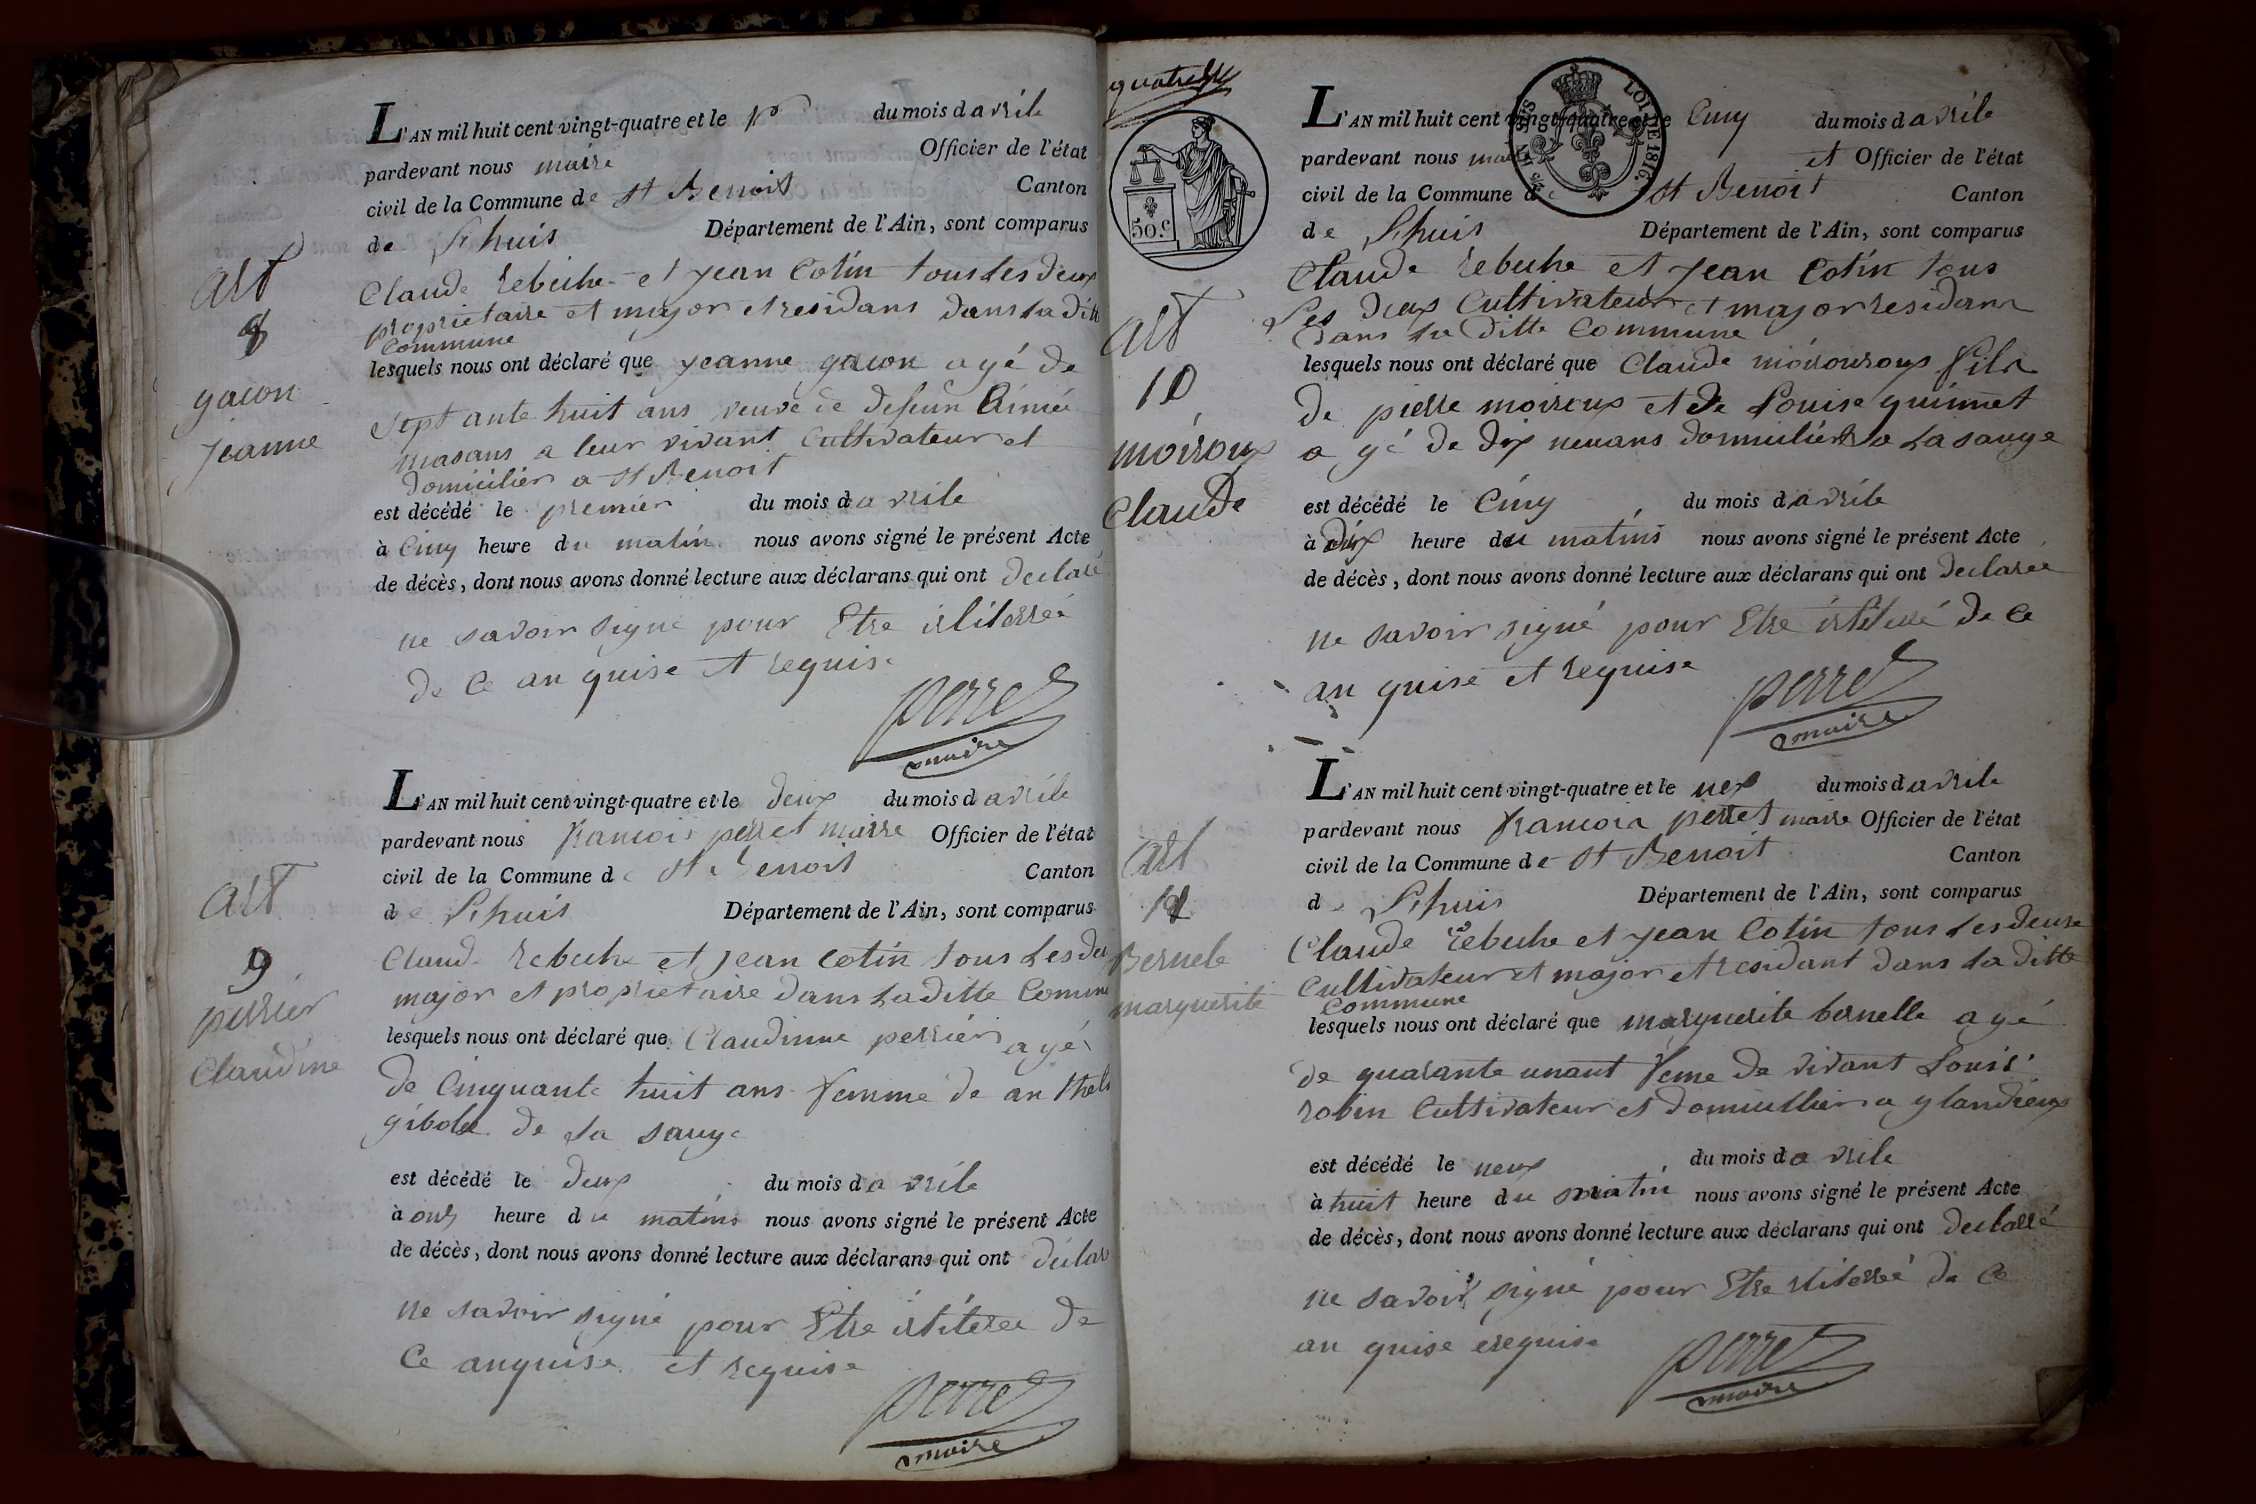 L'AN mil huit cent vingt-quatre et le pr du mois d avrile
pardevant nous maire Officier de l'état
civil de la Commune de St Benoit Canton
de Lhuis Département de l'Ain, sont comparus
Claude rebuhe et jean Cotin tous les deux
proprietaire et major et residans dans la ditt
Commune
art
8
gacon
jeanne
lesquels nous ont déclaré que jeanne gacon agé de
Sept ante huit ans veuve de defeun Aimé
masans a leur vivant Cultivateur et
domicilier a St Benoit
est décédé le premier du mois d avrile
à Cinq heure du matin nous avons signé le présent Acte
de décès, dont nous avons donné lecture aux déclarans qui ont declaré
ne savoir signé pour Etre
de Ce an quise et requise
perret
maire
L'AN mil huit cent vingt-quatre et le deux du mois d avrile
pardevant nous francois perret maire Officier de l'état
civil de la Commune de St Benoit Canton
de Lhuis Département de l'Ain, sont comparus
Claude rebuhe et jean Cotin tous les deu
major et proprietaire dans la ditte Comune
art
9
perrier
Claudine
lesquels nous ont déclaré que Claudinne perrier agé
de Cinquante huit ans femme de an thel
de la sauge
est décédé le deux du mois d avrile
à heure du matins nous avons signé le présent Acte
de décès, dont nous avons donné lecture aux déclarans qui ont déclar
ne savoir signé pour Etre de
Ce anquise et requise
perret
maire
50.c
LOI DE 1816.
L'AN mil huit cent vingt-quatre et le Cinq du mois d avrile
pardevant nous maire et Officier de l'état
civil de la Commune de St Benoit Canton
de Lhuis Département de l'Ain, sont comparus
Claude rebuhe et jean Cotin tous
Les deux Cultivateur et major residans
dans la ditte Commune
art
10
moiroux
Claude
lesquels nous ont déclaré que Claude fils
de pierre moiroux et de Louise quinnet
a gé de dix neuans domicilier a La sauge
est décédé le Cinq du mois d avrile
à dix heure du matins nous avons signé le présent Acte
de décès, dont nous avons donné lecture aux déclarans qui ont declarée
ne savoir signé pour Etre de Ce
an quise et requise
perret
maire
L'AN mil huit cent vingt-quatre et le du mois d avrile
pardevant nous francois perret maire Officier de l'état
civil de la Commune de St Benoit Canton
de Lhuis Département de l'Ain, sont comparus
Claude rebuhe et jean Cotin tous les deuxe
Cultivateur et major et residant dans la ditte
Commune
art
Bernele
marguerite
lesquels nous ont déclaré que marguerite bernelle agé
de quarante unant feme de vivant Louis
robin Cultivateur et domicillier a glandieux
est décédé le neux du mois d avrile
à huit heure du matin nous avons signé le présent Acte
de décès, dont nous avons donné lecture aux déclarans qui ont declarré
ne savoir signé pour Etre de Ce
an quise erequise
perret
maire